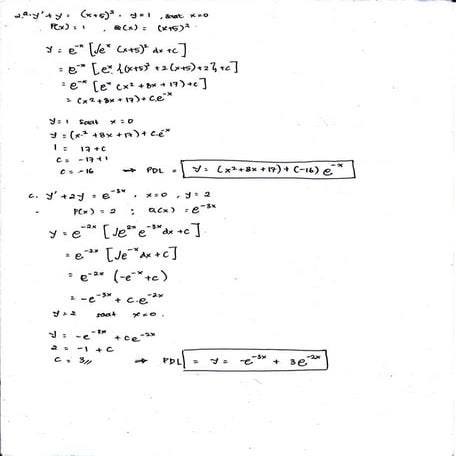 2.a. y' + y = (x+5)². y = 1, saat x = 0
P(x) = 1, Q(x) = (x+5)²
y = e⁻ˣ [∫eˣ (x+5)² dx + c]
= e⁻ˣ [eˣ {(x+5)² + 2(x+5) + 2} + c]
= e⁻ˣ [eˣ (x² + 8x + 17) + c]
= (x² + 8x + 17) + c.e⁻ˣ
y = 1 saat x = 0
y = (x² + 8x + 17) + c.e⁻ˣ
1 = 17 + c
c = -17 + 1
c = -16 → PDL = y = (x² + 8x + 17) + (-16) e⁻ˣ
c. y' + 2y = e⁻³ˣ. x = 0, y = 2
P(x) = 2 ; Q(x) = e⁻³ˣ
y = e⁻²ˣ [∫e²ˣ e⁻³ˣ dx + c]
= e⁻²ˣ [∫e⁻ˣ dx + c]
= e⁻²ˣ (-e⁻ˣ + c)
= -e⁻³ˣ + c.e⁻²ˣ
y = 2 saat x = 0.
y = -e⁻³ˣ + ce⁻²ˣ
2 = -1 + c
c = 3 // → PDL = y = -e⁻³ˣ + 3e⁻²ˣ